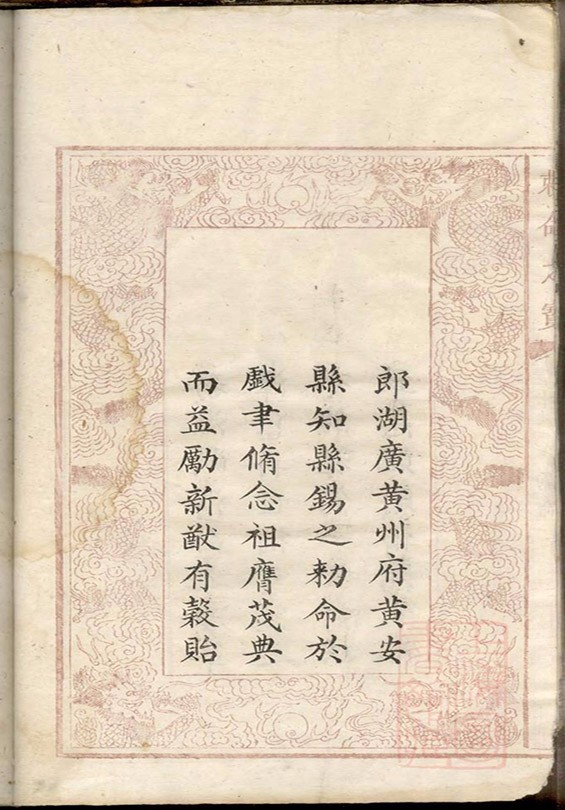 郎湖廣黄州府黄安
縣知縣錫之勑命於
戱聿脩念祖膺茂典
而益勵新猷有榖貽